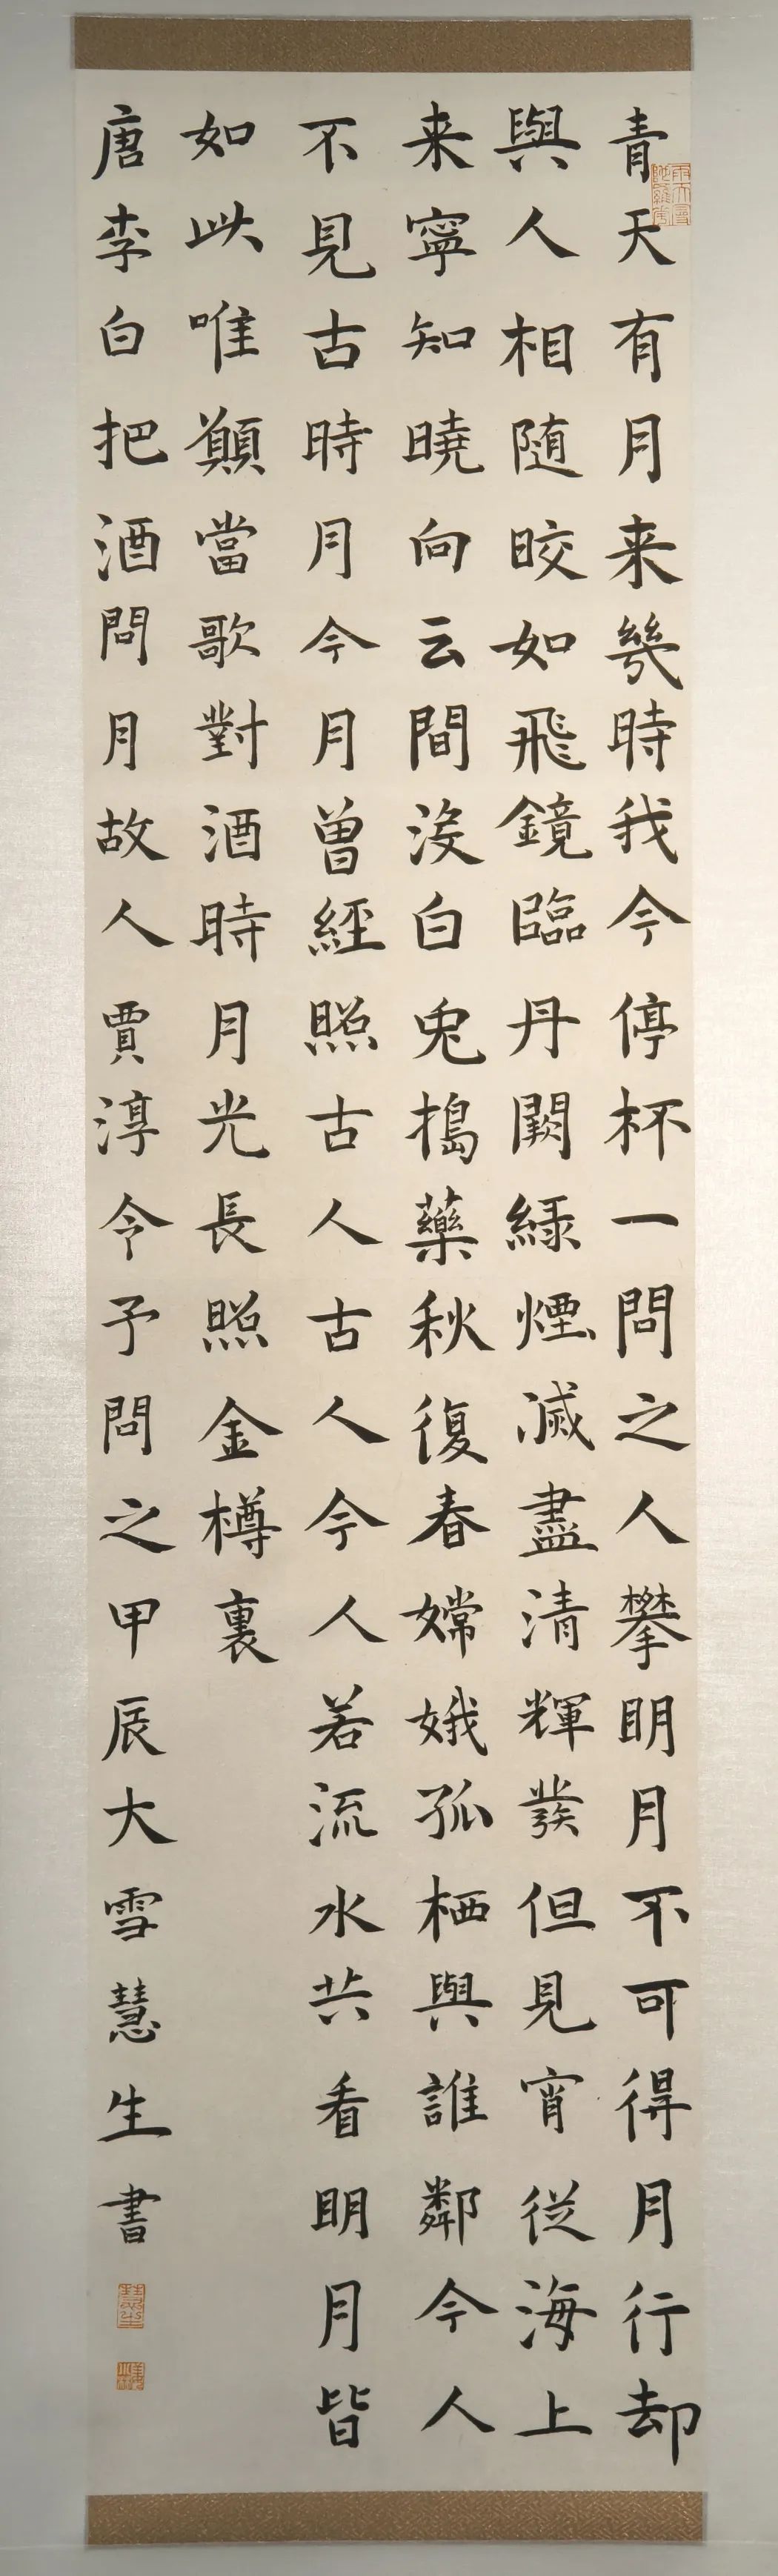 青天有月来幾時我今停杯一問之人攀明月不可得月行却
與人相随皎如飛鏡臨丹闕緑煙滅盡清輝發但見宵從海上
来寧知曉向云間没白兔搗藥秋復春嫦娥孤栖與誰鄰今人
不見古時月今月曾經照古人古人今人若流水共看明月皆
如此唯願當歌對酒時月光長照金樽裏
唐李白把酒問月故人賈淳令予問之甲辰大雪慧生書